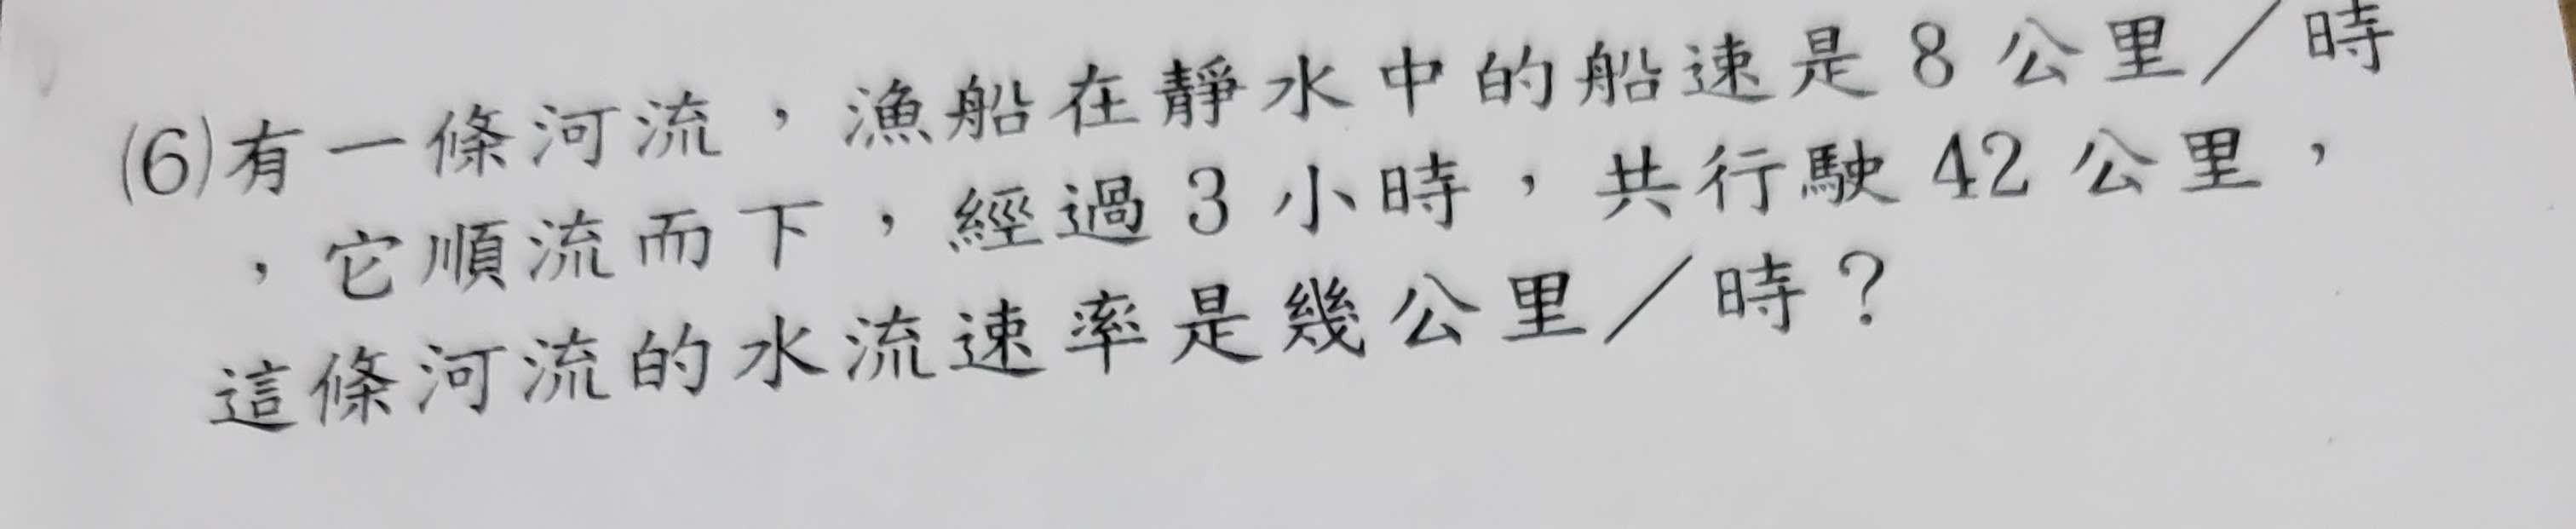 (6)有一條河流,漁船在靜水中的船速是8公里/時
,它順流而下,經過3小時,共行駛42公里,
這條河流的水流速率是幾公里/時?